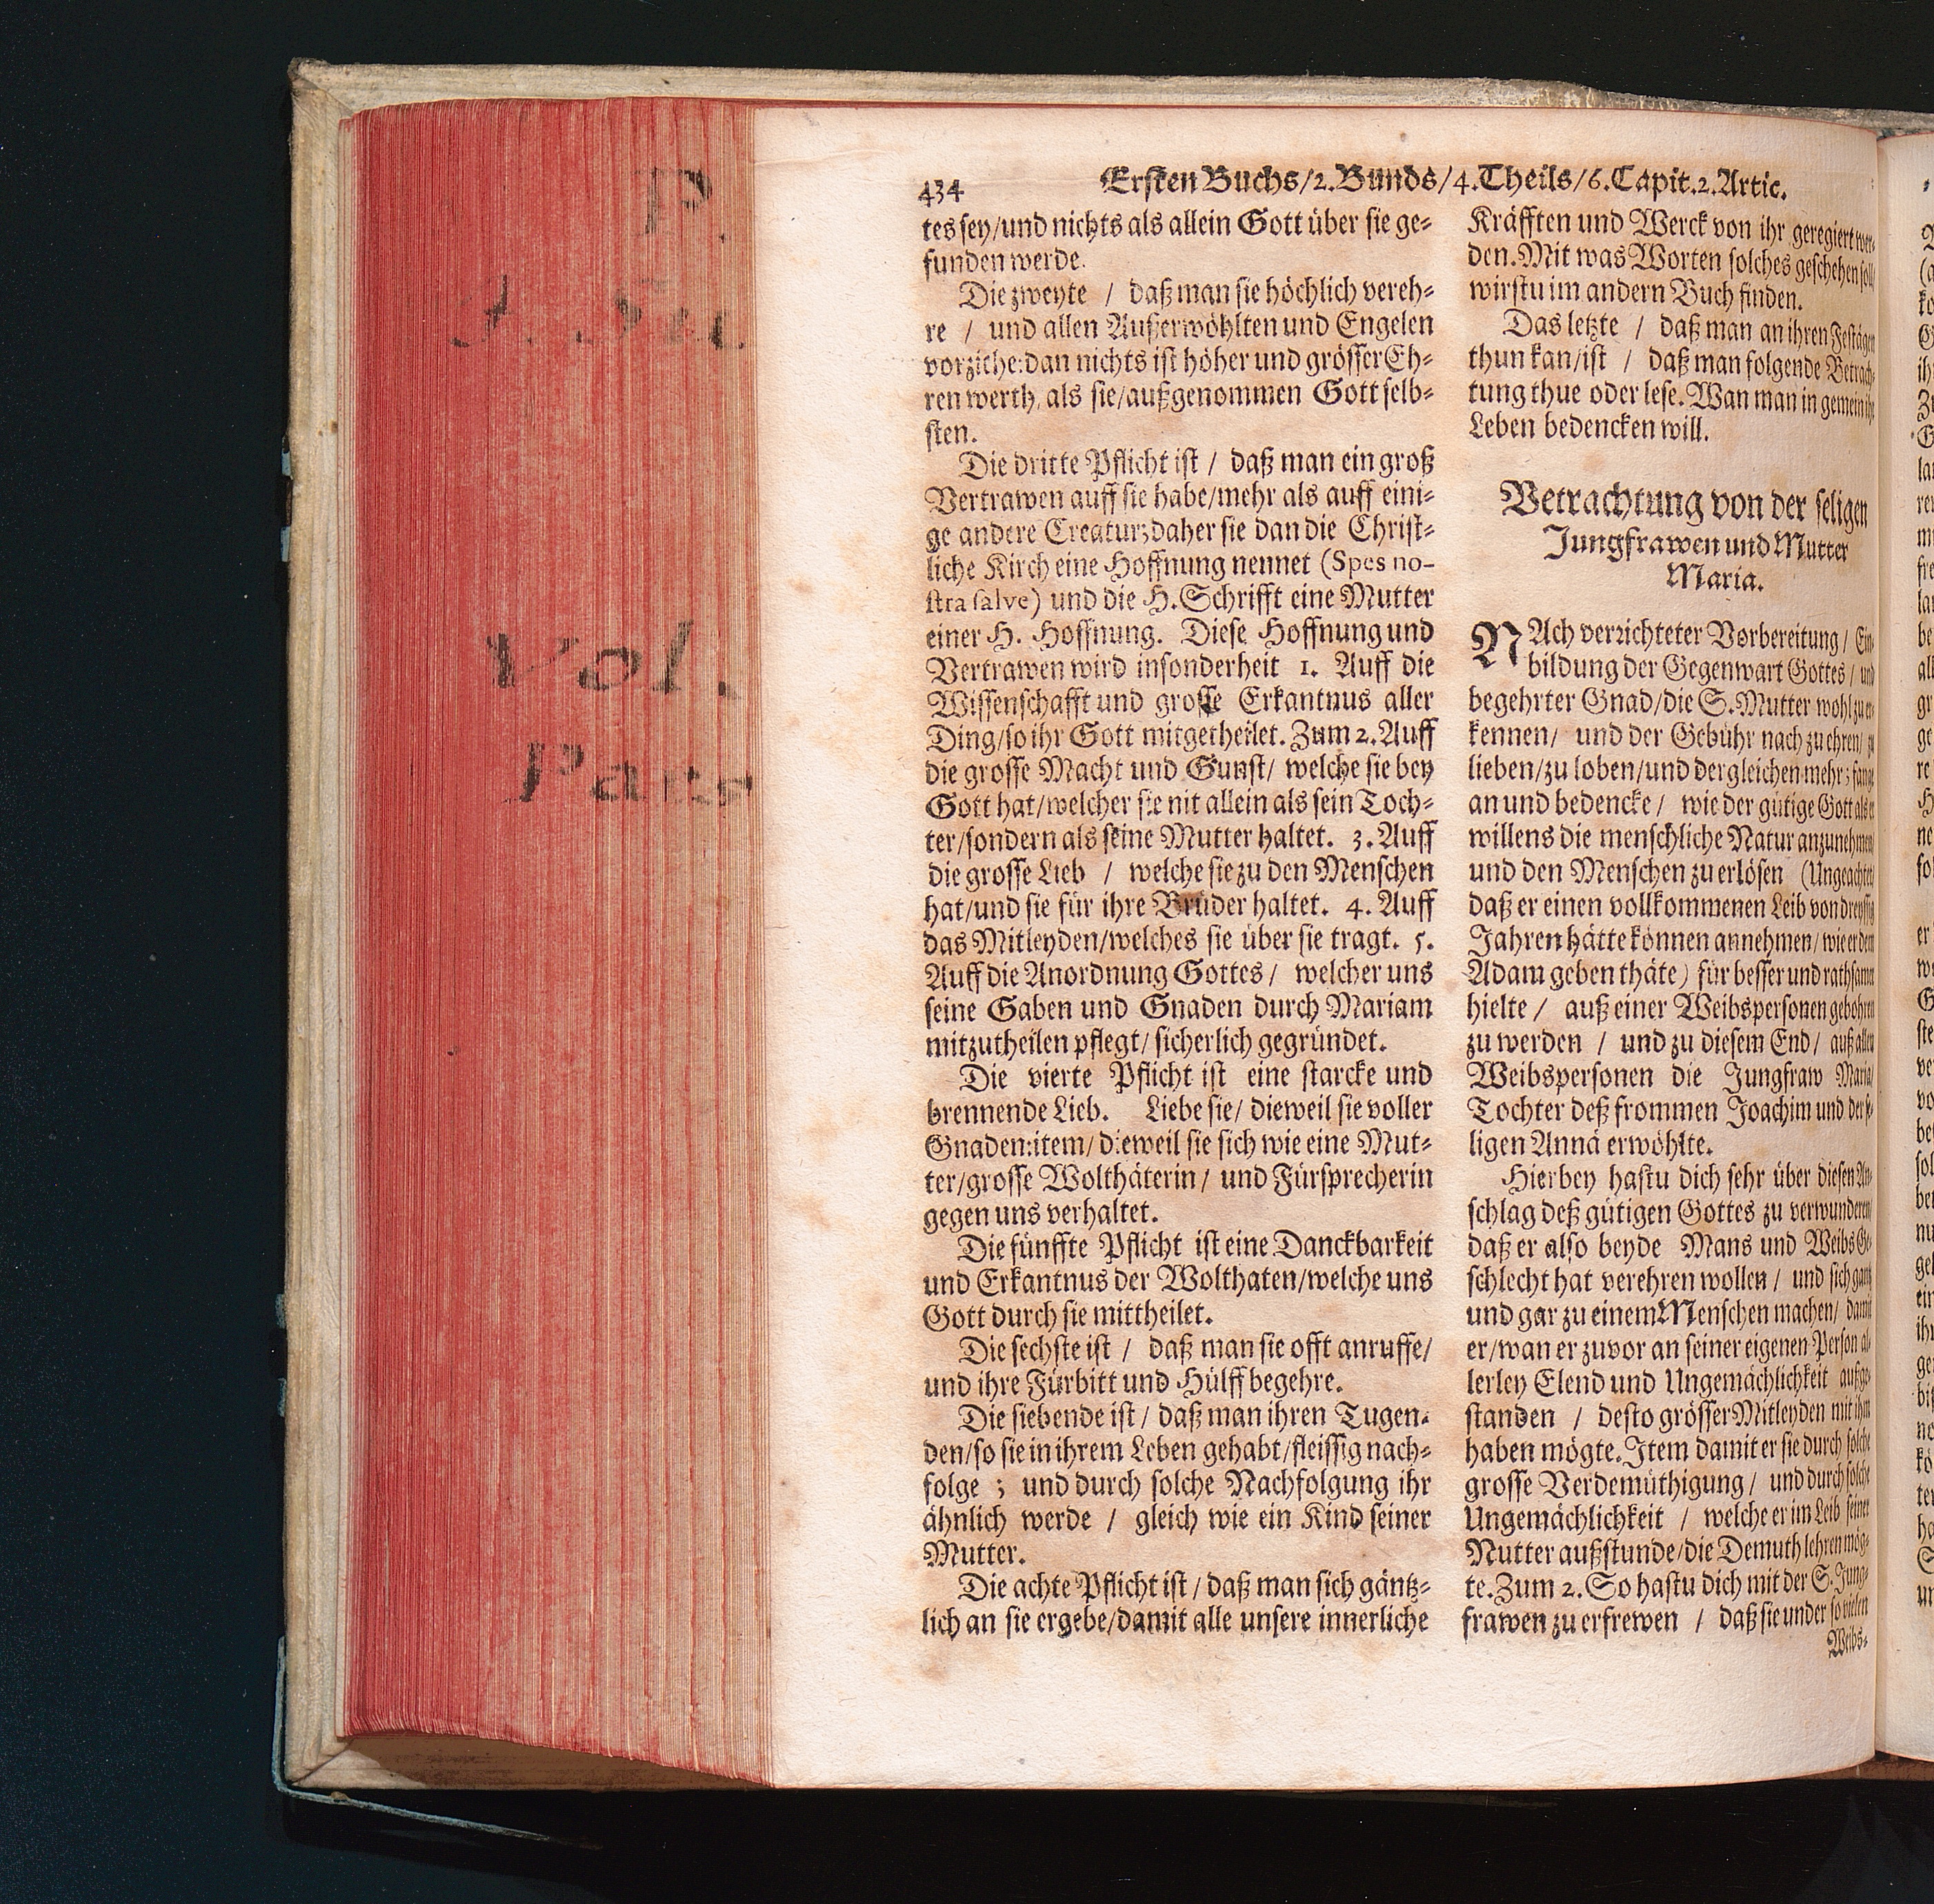 434 Ersten Buchs/2.Bunds/4.Theils/6.Capit.2.Artic.
tes sey/und nichts als allein Gott über sie ge-
funden werde.
Die zweyte / daß man sie höchlich vereh-
re / und allen Außerwöhlten und Engelen
vorziehe: dan nichts ist höher und grösser Eh-
ren werth, als sie/außgenommen Gott selb-
sten.
Die dritte Pflicht ist / daß man ein groß
Vertrawen auff sie habe/mehr als auff eini-
ge andere Creatur; daher sie dan die Christ-
liche Kirch eine Hoffnung nennet (Spes no-
stra salve) und die H. Schrifft eine Mutter
einer H. Hoffnung. Diese Hoffnung und
Vertrawen wird insonderheit 1. Auff die
Wissenschafft und grosse Erkantnus aller
Ding/so ihr Gott mitgetheilet. Zum 2. Auff
die grosse Macht und Gunst/ welche sie bey
Gott hat/welcher sie nit allein als sein Toch-
ter/sondern als seine Mutter haltet. 3. Auff
die grosse Lieb / welche sie zu den Menschen
hat/und sie für ihre Brüder haltet. 4. Auff
das Mitleyden/welches sie über sie tragt. 5.
Auff die Anordnung Gottes/ welcher uns
seine Gaben und Gnaden durch Mariam
mitzutheilen pflegt/ sicherlich gegründet.
Die vierte Pflicht ist eine starcke und
brennende Lieb. Liebe sie/ dieweil sie voller
Gnaden: item/ dieweil sie sich wie eine Mut-
ter/grosse Wolthäterin/ und Fürsprecherin
gegen uns verhaltet.
Die fünffte Pflicht ist eine Danckbarkeit
und Erkantnus der Wolthaten/welche uns
Gott durch sie mittheilet.
Die sechste ist / daß man sie offt anruffe/
und ihre Fürbitt und Hülff begehre.
Die siebende ist / daß man ihren Tugen-
den/so sie in ihrem Leben gehabt/fleissig nach-
folge ; und durch solche Nachfolgung ihr
ähnlich werde / gleich wie ein Kind seiner
Mutter.
Die achte Pflicht ist / daß man sich gäntz-
lich an sie ergebe/damit alle unsere innerliche
Kräfften und Werck von ihr geregiert wer-
den. Mit was Worten solches geschehen soll/
wirstu im andern Buch finden.
Das letzte / daß man an ihren Festägen
thun kan/ist / daß man folgende Betrach-
tung thue oder lese. Wan man in gemein ihr
Leben bedencken will.
Betrachtung von der seligen
Jungfrawen und Mutter
Maria.
NAch verrichteter Vorbereitung/ Ein-
bildung der Gegenwart Gottes / und
begehrter Gnad/die S. Mutter wohl zu er-
kennen/ und der Gebühr nach zu ehren/ zu
lieben/zu loben/und dergleichen mehr; fange
an und bedencke / wie der gütige Gott als er
willens die menschliche Natur anzunehmen/
und den Menschen zu erlösen (Ungeachtet/
daß er einen vollkommenen Leib von dreyssig
Jahren hätte können annehmen/ wie er dem
Adam geben thäte) für besser und rathsamm
hielte / auß einer Weibspersonen gebohren
zu werden / und zu diesem End/ auß allen
Weibspersonen die Jungfraw Maria/
Tochter deß frommen Joachim und der se-
ligen Annä erwöhlte.
Hierbey hastu dich sehr über diesen An-
schlag deß gütigen Gottes zu verwunderen/
daß er also beyde Mans und Weibs Ge-
schlecht hat verehren wollen / und sich gantz
und gar zu einem Menschen machen/ damit
er/wan er zuvor an seiner eigenen Person al-
lerley Elend und Ungemächlichkeit außge-
standen / desto grösser Mitleyden mit ihm
haben mögte. Item damit er sie durch solche
grosse Verdemüthigung/ und durch solche
Ungemächlichkeit / welche er im Leib seiner
Mutter außstunde/die Demuth lehren mög-
te. Zum 2. So hastu dich mit der S. Jung-
frawen zu erfrewen / daß sie under so vielen
Weibs-
P.
Vol.
Pars